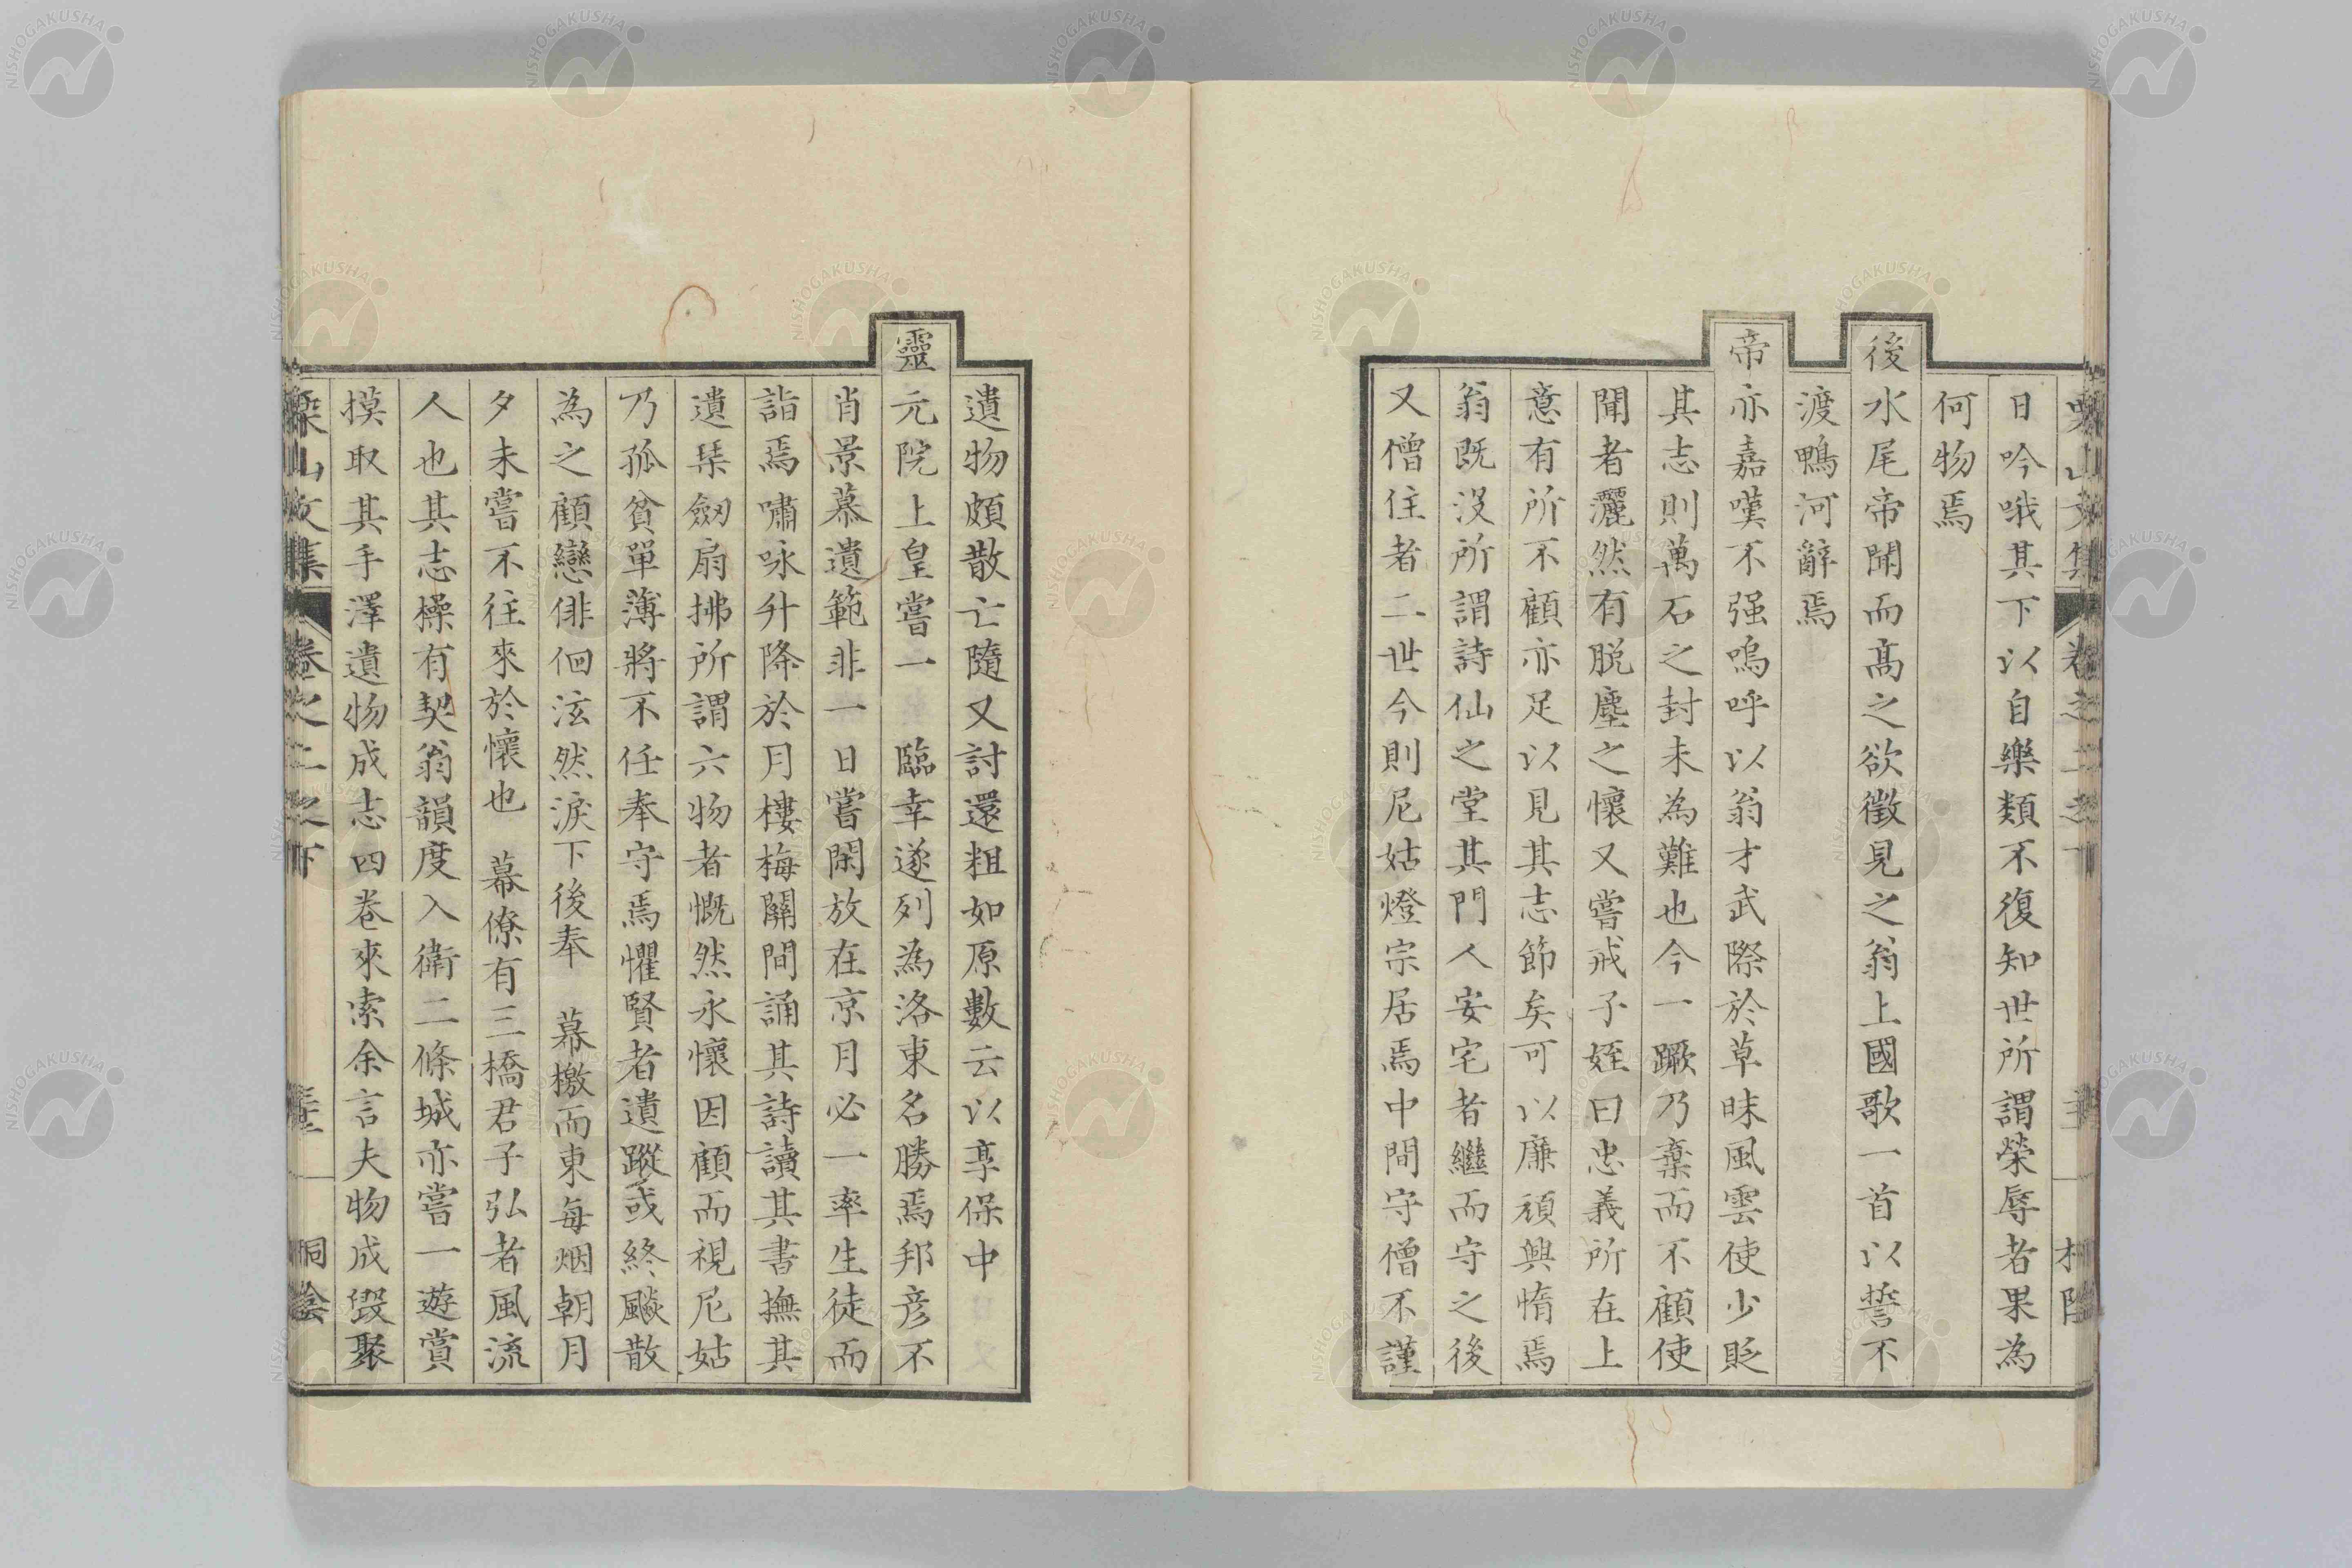 日吟哦其下以自樂類不復知世所謂榮辱者果為
何物焉
後水尾帝聞而髙之欲徵見之翁上國歌一首以誓不
渡鴨河辭焉
帝亦嘉嘆不强嗚呼以翁才武際於草昧風雲使少貶
其志則萬石之封未為難也今一蹶乃棄而不顧使
聞者灑然有脱塵之懷又嘗戒子姪曰忠義所在上
意有所不顧亦足以見其志節矣可以廉頑興惰焉
翁既沒所謂詩仙之堂其門人安宅者繼而守之後
又僧住者二世今則尼姑燈宗居焉中間守僧不謹
遺物頗散亡隨又討還粗如原數云以享保中
靈元院上皇嘗一 臨幸遂列為洛東名勝焉邦彦不
肖景慕遺範非一日嘗閑放在京月必一率生徒而
詣焉嘯咏升降於月樓梅關間誦其詩讀其書撫其
遺琹劔扇拂所謂六物者慨然永懷因顧而視尼姑
乃孤貧單薄將不任奉守焉懼賢者遺蹤或終飈散
為之顧戀俳佪泫然淚下後奉 幕檄而東每烟朝月
夕未嘗不往來於懷也 幕僚有三橋君子弘者風流
人也其志操有契翁韻度入衛二條城亦嘗一遊賞
摸取其手澤遺物成志四卷來索余言夫物成毁聚
山文集 卷之二之下 桐陰